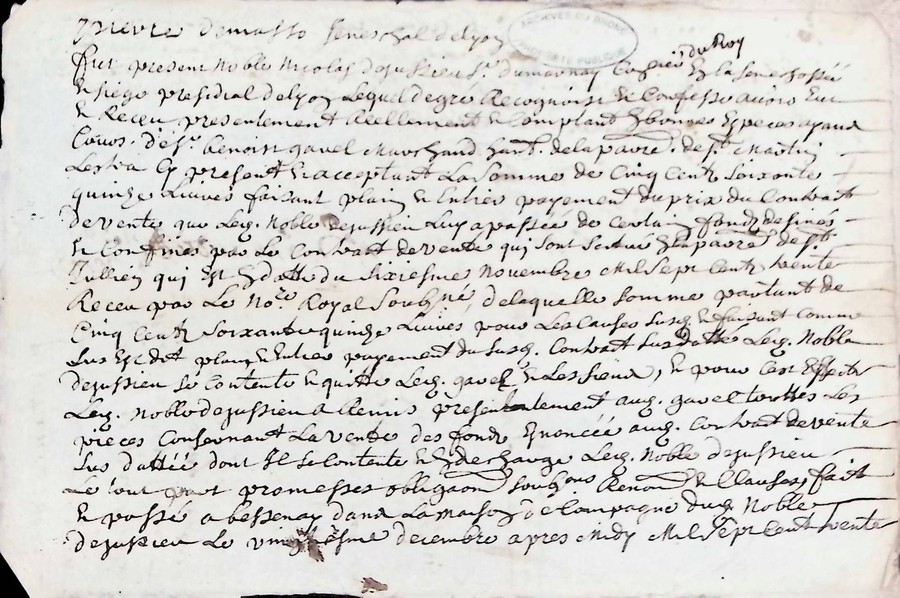 demasso seneschal de lyon
ARCHIVES DU RHONE
PROPRIETE PUBLIQUE
du Roy
fut present noble Nicolas dejussieu Sr. dumornay En la seneschossée
Et siege presidial de lyon Lequel degré Recognoist & Confesse avoir Eu
& Receu presentement Réellement & Comptant En bonnes Especes ayand
Cours. de Sr. benoist gavel Marchand hant. de la parre. de St. Martin
Lestra Cy present & acceptant La somme de Cinq Centz soixante
quinze Livres faisant plain & Entier payement du prix du Contrat
de vente que Led. Noble dejussieu Luy a passée de certain fondz desinés
& Confines par Le Contrat de vente qui sont scitués En la parre. de St.
Jullien qui Est En datte du sixiesme Novembre Mil sept Centz trente
Receu par Le Nore. Royal Soubné, de laquelle somme partant de
Cinq Centz soixante quinze Livres pour Les Causes susd. & faisant comme
sus Est dit plain & Entier payement du susd. Contrat sus datté Led. Noble
dejussieu se Contente & quitte Led. gavel & Les sieux, & pour Cest Effect
Led. Noble dejussieu a Remis presentement aud. gavel touttes Les
pieces Consernant La vente des fondz Enoncée aud. Contrat de vente
sus dattée dont Il se Contente & En descharge Led. Noble dejussieu
Le tout par promesses obligaon Renon & Clauses, fait
& passé a bessenay dans La Maison de Campagne dud. Noble
dejussieu Le decembre apres Midy Mil sept Cent trente